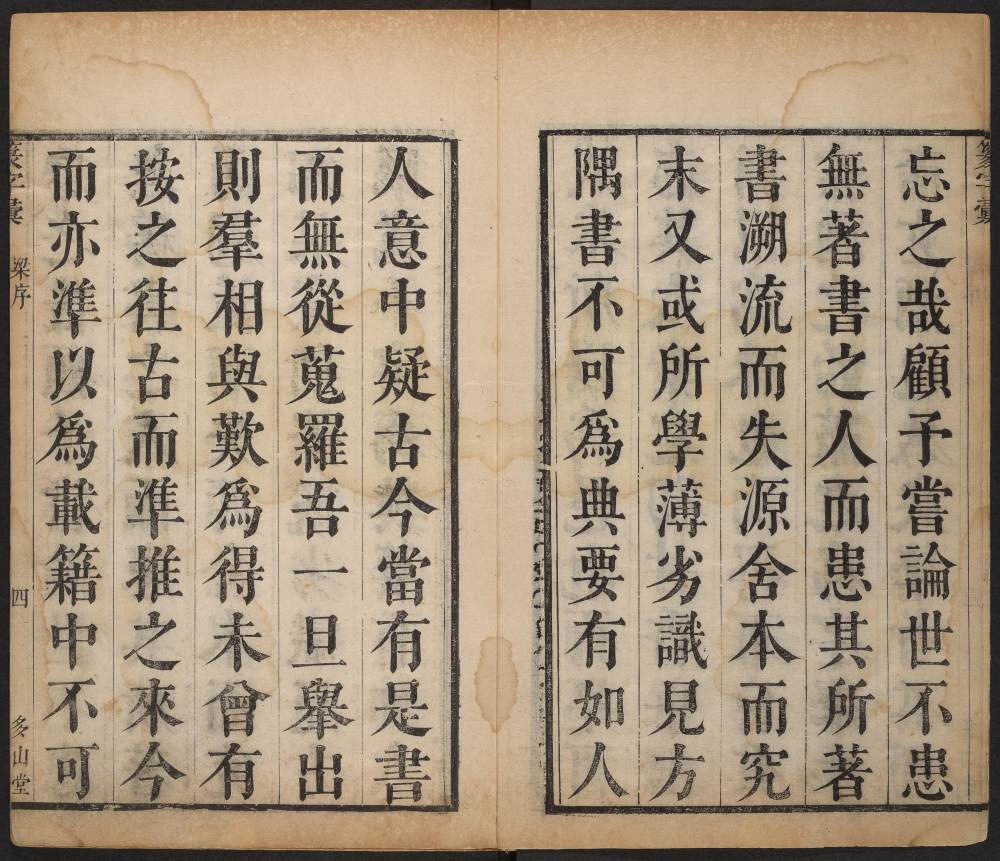 篆字彙
忘之哉顧予嘗論世不患
無著書之人而患其所著
書溯流而失源舍本而究
末又或所學薄劣識見方
隅書不可為典要有如人
人意中疑古今當有是書
而無從蒐羅吾一旦舉出
則羣相與歎為得未曾有
按之往古而準推之來今
而亦準以為載籍中不可
篆字彙
梁序
四
多山堂